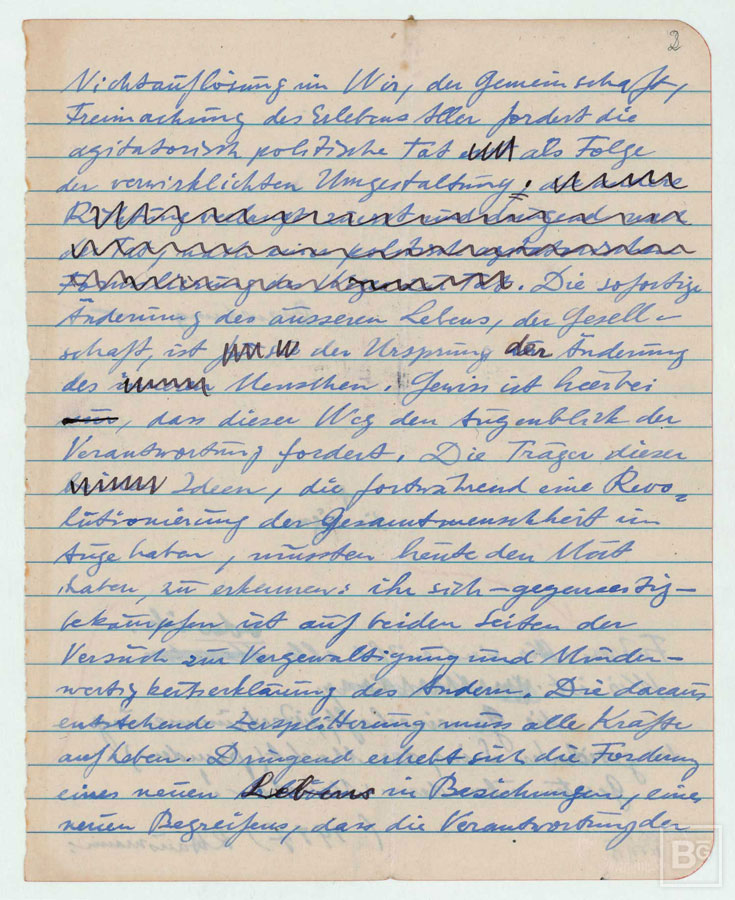 2
Nichtauflösung im Wir, der Gemeinschaft,
Freimachung des Erlebens Aller fordert die
agitatorisch politische Tat als Folge
der verwirklichten Umgestaltung;
. Die sofortige
Änderung des äusseren Lebens, der Gesell-
schaft, ist der Ursprung der Änderung
des Menschen. Gewiss ist hierbei
, dass dieser Weg den Augenblick der
Verantwortung fordert. Die Träger dieser
Ideen, die fortwährend eine Revo=
lutionierung der Gesamtmenschheit im
Auge haben, müssten heute den Mut
haben, zu erkennen: ihr sich-gegenseitig-
bekämpfen ist auf beiden Seiten der
Versuch zur Vergewaltigung und Minder-
wertigkeitserklärung des Andern. Die daraus
entstehende Zersplitterung muss alle Kräfte
aufheben. Dringend erhebt sich die Forderung
eines neuen Lebens in Beziehungen, eines
neuen Begreifens, dass die Verantwortung der
BG